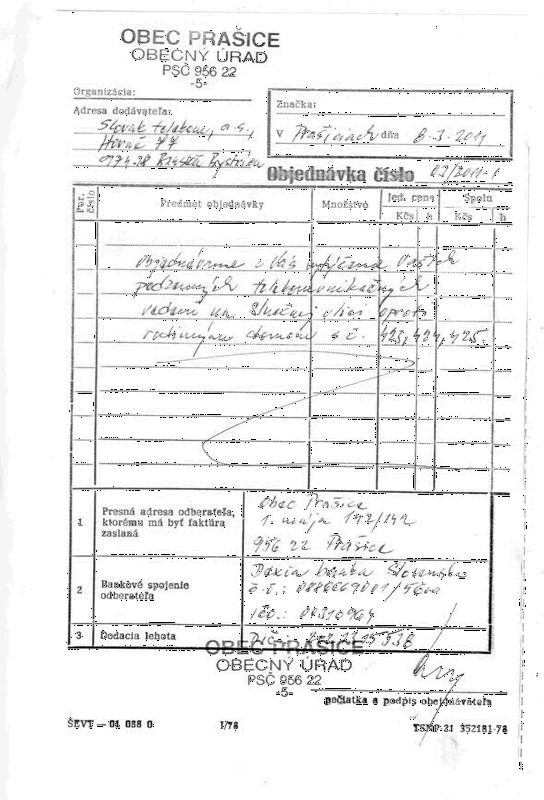 OBEC PRAŠICE
OBECNÝ ÚRAD
PSČ 956 22
-5-
Organizácia:
Adresa dodávateľa:
Slovak telekom, a.s.,
Horná 77
974 28 Banská Bystrica
Značka:
V Prašiciach dňa 8.3.2011
Objednávka číslo 03/2011-
Por. číslo
Predmet objednávky
Množstvo
Jed. cena
Kčs h
Spolu
Kčs h
Objednávame u Vás vytýčenie Vašich
podzemných telekomunikačných
vedení na Slnečnej ulici oproti
rodinným domom s.č. 423, 424, 425.
1
Presná adresa odberateľa,
ktorému má byť faktúra
zaslaná
Obec Prašice
1. mája 192/142
956 22 Prašice
2
Bankové spojenie
odberateľa
Dexia banka Slovensko
č.ú.: 0880669001/5600
IČO.: 00310964
3
Dodacia lehota
DIČ:
OBEC PRAŠICE
OBECNÝ ÚRAD
PSČ 956 22
-5-
pečiatka a podpis objednávateľa
ŠEVT — 04 066 0
I/78
TSNP-21 352181-78